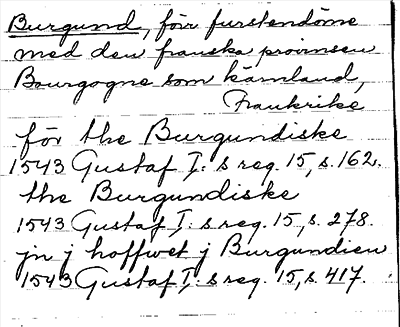 Burgund, förr furstendöme
med den franska provinsen
Bourgogne som kärnland,
Frankrike
för the Burgundiske
1543 Gustaf I:s reg. 15, s. 162.
the Burgundiske
1543 Gustaf I:s reg. 15, s. 278.
jn j hoffwet j Burgundien
1543 Gustaf I:s reg. 15, s. 417.